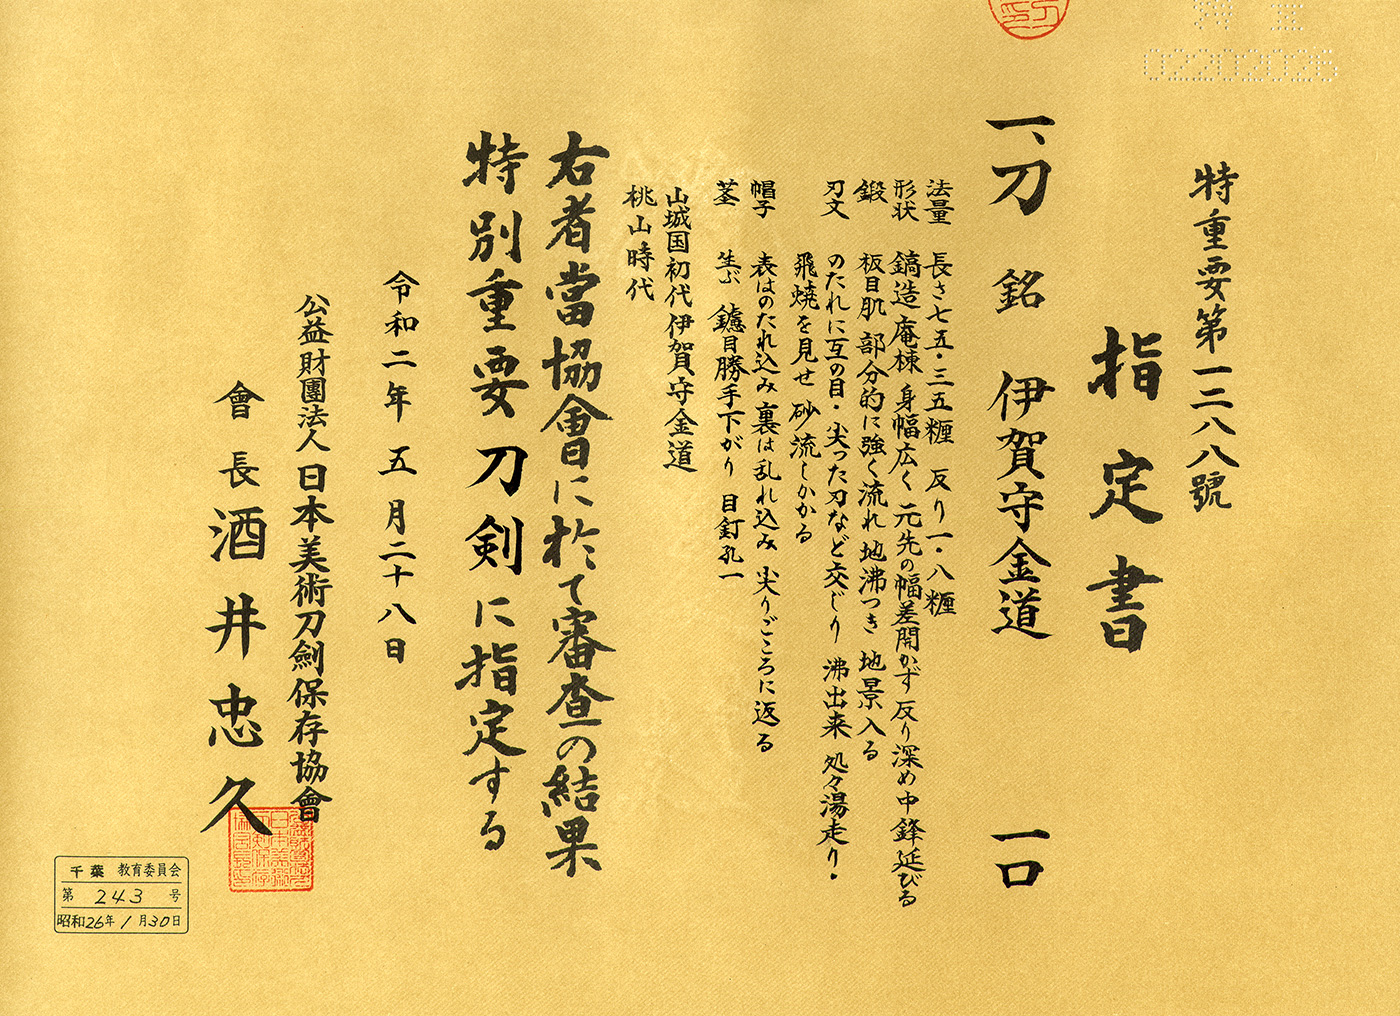 02202026
特重要第一二八八號
指定書
一、刀 銘 伊賀守金道 一口
法量 長さ七五・三五糎 反り一・八糎
形状 鎬造 庵棟 身幅広く 元先の幅差開かず 反り深め 中鋒延びる
鍛 板目肌 部分的に強く流れ 地沸つき 地景入る
刃文 のたれに互の目・尖った刃など交じり 沸出来 処々湯走り・
飛焼を見せ 砂流しかかる
帽子 表はのたれ込み 裏は乱れ込み 尖りごころに返る
茎 生ぶ 鑢目勝手下がり 目釘孔一
山城国初代伊賀守金道
桃山時代
右者當協會に於て審査の結果
特別重要刀剣に指定する
令和二年五月二十八日
公益財團法人日本美術刀劍保存協會
會長 酒井忠久
千葉 教育委員会
第 243 号
昭和26年1月30日